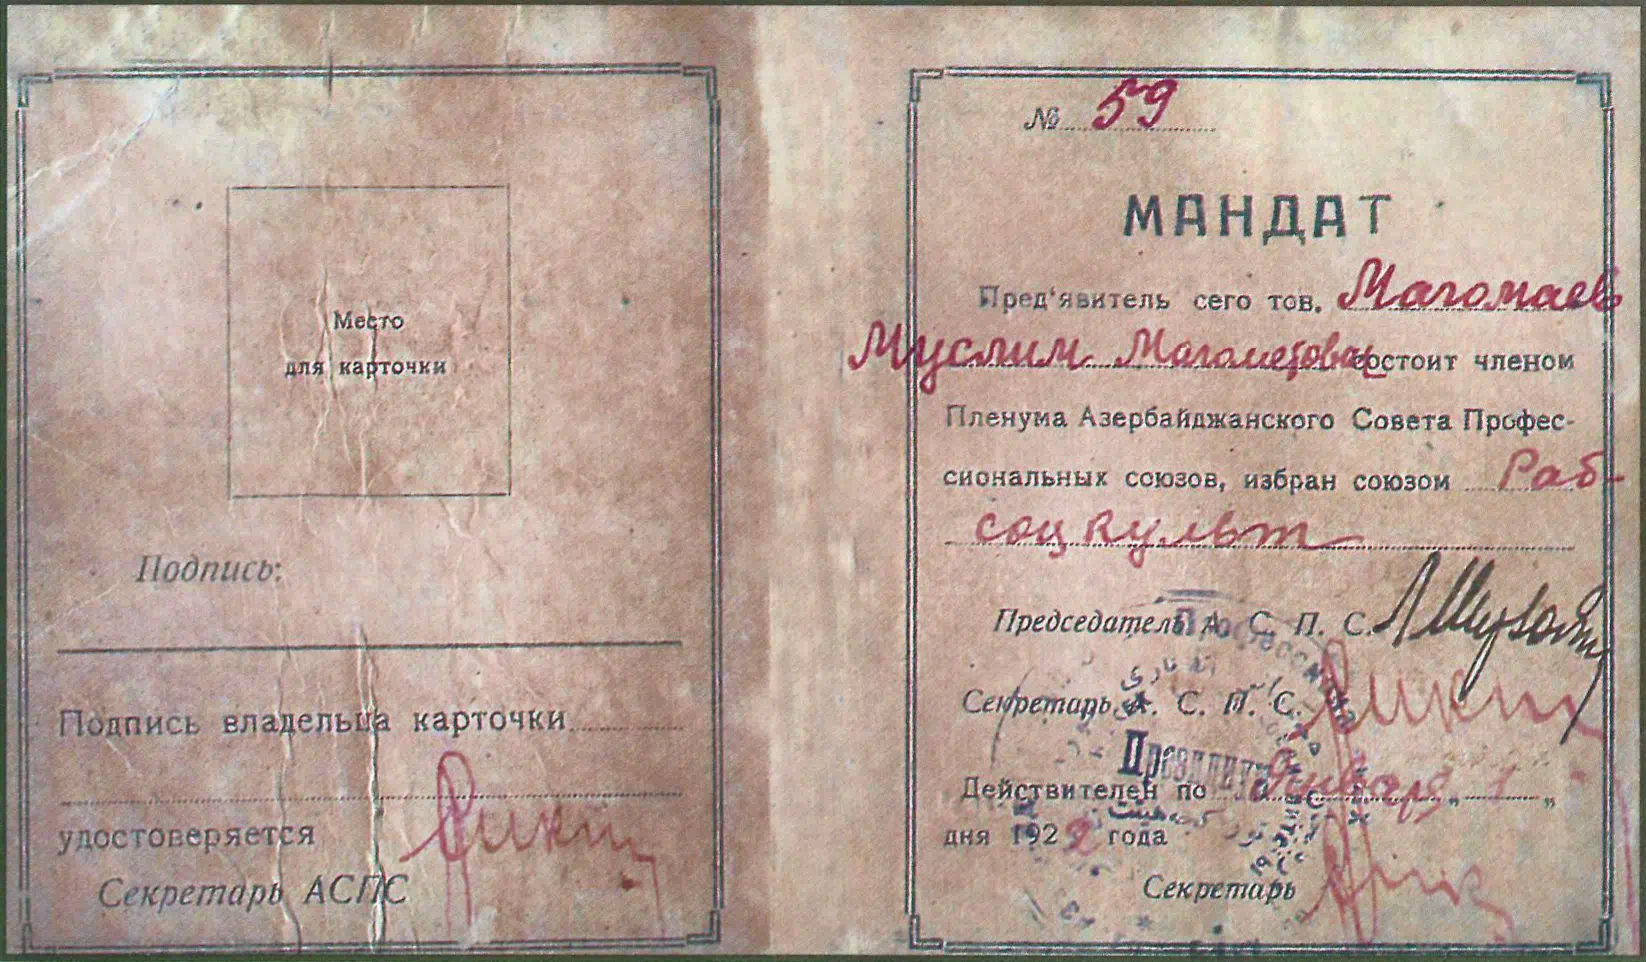 Место
для карточки
Подпись:
Подпись владельца карточки
удостоверяется
Секретарь АСПС
№ 59
МАНДАТ
Пред'явитель сего тов. Магомаев
Муслим Магометович состоит членом
Пленума Азербайджанского Совета Профес-
сиональных союзов, избран союзом Раб-
соцкульт
Председатель А. С. П. С.
Секретарь А. С. П. С.
Президиум
Действителен по января „ 1 „
дня 1922 года
Секретарь